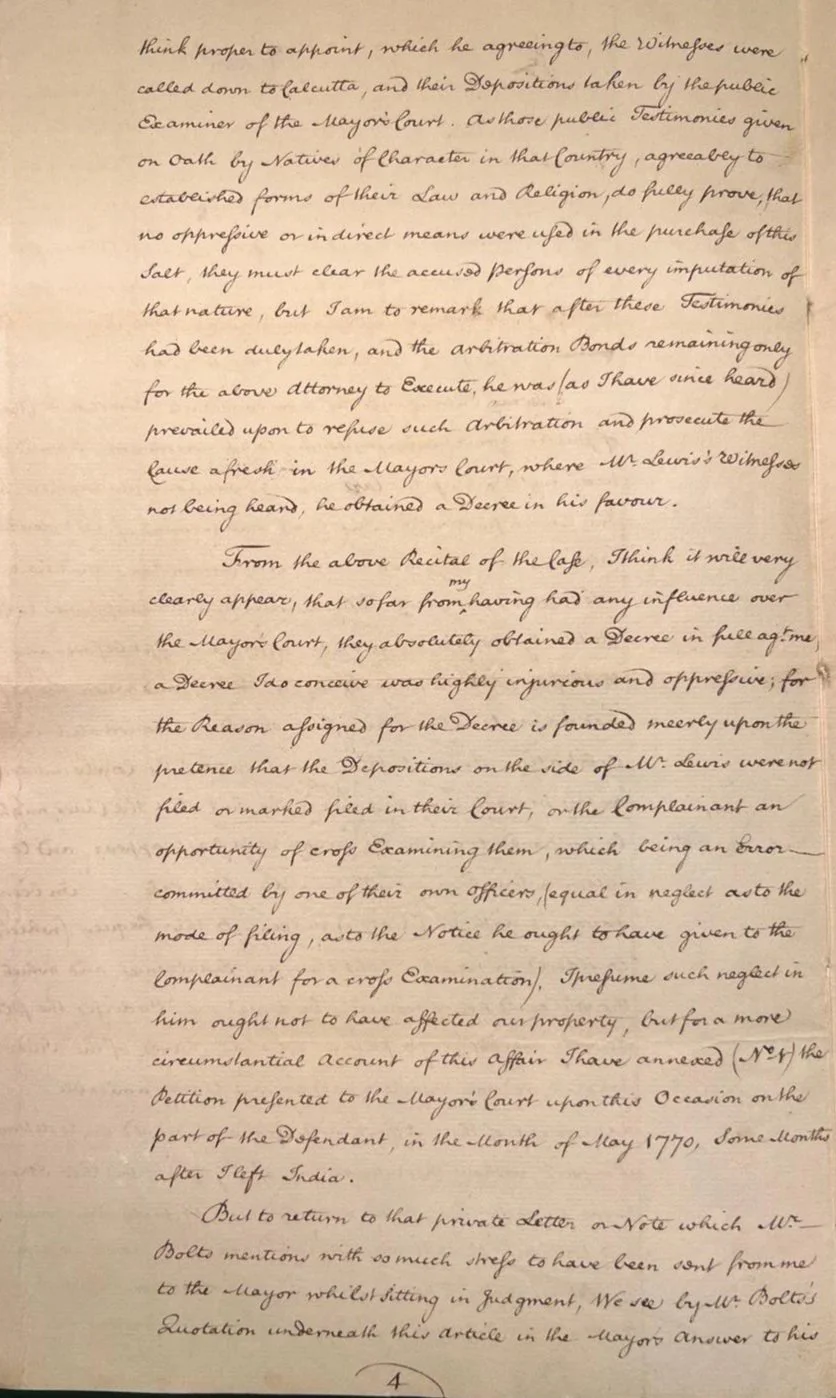 think proper to appoint, which he agreeing to, the Witnesses were
called down to Calcutta, and their Depositions taken by the public
Examiner of the Mayor's Court. As those public Testimonies given
on Oath by Natives of Character in that Country, agreeably to
established forms of their Law and Religion, do fully prove, that
no oppressive or indirect means were used in the purchase of this
Salt, they must clear the accused Persons of every imputation of
that nature, but I am to remark that after these Testimonies
had been duly taken, and the Arbitration Bonds remaining only
for the above Attorney to Execute, he was (as I have since heard)
prevailed upon to refuse such Arbitration and prosecute the
Cause afresh in the Mayors Court, where Mr. Lewis's Witnesses
not being heard, he obtained a Decree in his favour.
From the above Recital of the Case, I think it will very
clearly appear, that so far from my having had any influence over
the Mayor's Court, they absolutely obtained a Decree in full agt. me,
a Decree I do conceive was highly injurious and oppressive; for
the Reason assigned for the Decree is founded meerly upon the
pretence that the Depositions on the side of Mr. Lewis were not
filed or marked filed in their Court, or the Complainant an
opportunity of cross Examining them, which being an Error
committed by one of their own Officers, (equal in neglect as to the
mode of filing, as to the Notice he ought to have given to the
Complainant for a cross Examination), I presume such neglect in
him ought not to have affected our property, but for a more
circumstantial Account of this Affair I have annexed (No. ) the
Petition presented to the Mayor's Court upon this Occasion on the
part of the Defendant, in the Month of May 1770, Some Months
after I left India.
But to return to that private Letter or Note which Mr.
Bolts mentions with so much stress to have been sent from me
to the Mayor whilst sitting in Judgment, We see by Mr. Bolts's
Quotation underneath this Article in the Mayors Answer to his
4